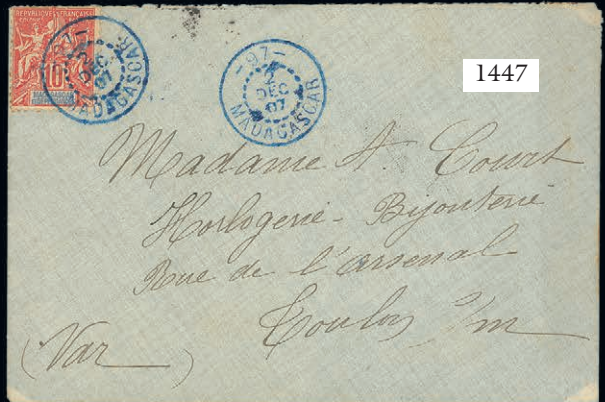 REPUBLIQUE FRANÇAISE
10
DEC
07
MADAGASCAR
-97-
2
DEC
07
MADAGASCAR
1447
Madame A. Court
Horlogerie - Bijouterie
Rue de l'arsenal
Toulon s/m
(Var)